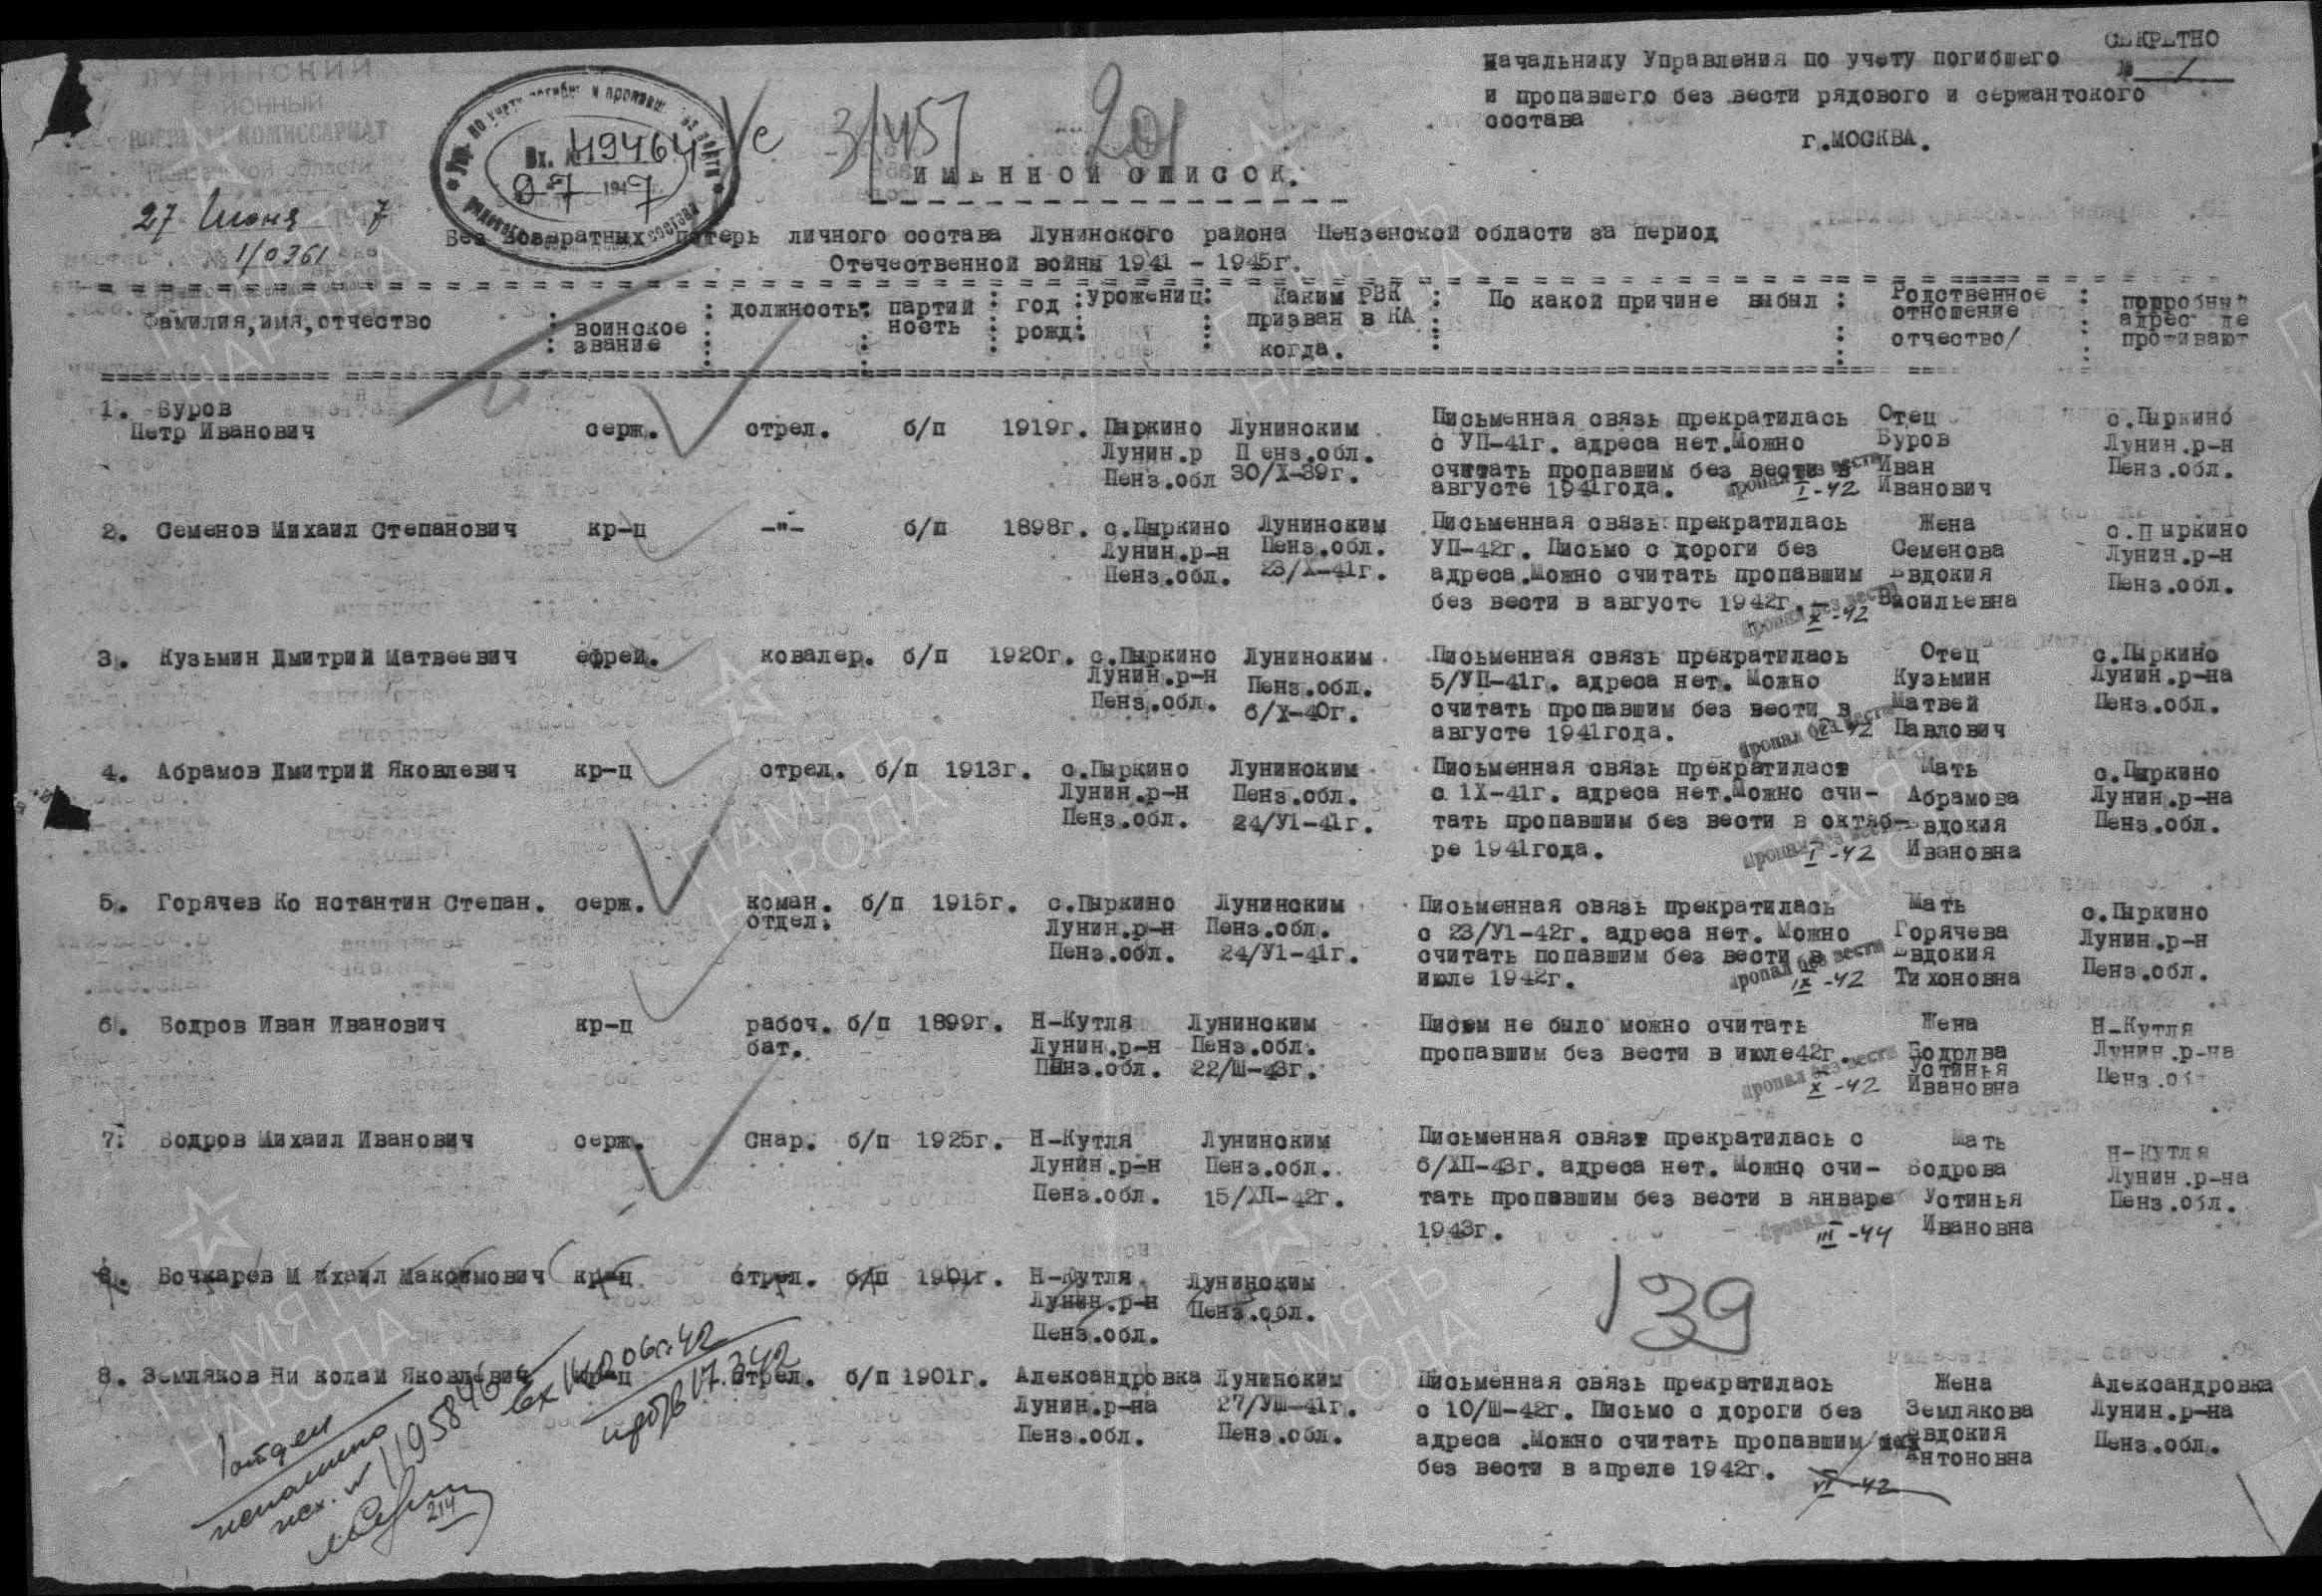 СЕКРЕТНО
№ 1
Начальнику Управления по учету погибшего
и пропавшего без вести рядового и сержантского
состава
г.МОСКВА.
ЛУНИНСКИЙ
РАЙОННЫЙ
ВОЕННЫЙ КОМИССАРИАТ
Пензенской области
27 Июня 7
№ 1/0361
Вх. № 49464
9-7 1947
3/457
201
ИМЕННОЙ СПИСОК.
Без возвратных потерь личного состава Лунинского района Пензенской области за период
Отечественной войны 1941 - 1945г.
Фамилия,имя,отчество : воинское звание : должность: партий ность : год рожд: урожениц: Каким РВК призван в КА когда. : По какой причине выбыл : Родственное отношение отчество/ : подробный адрес где проживают
1. Буров серж. стрел. б/п 1919г. Пыркино Лунинским Письменная связь прекратилась Отец с.Пыркино
Петр Иванович Лунин.р Пенз.обл. с УП-41г. адреса нет.Можно Буров Лунин.р-н
Пенз.обл 30/Х-39г. считать пропавшим без вести в Иван Пенз.обл.
августе 1941года. пропал без вести I-42 Иванович
2. Семенов Михаил Степанович кр-ц -"- б/п 1898г. с.Пыркино Лунинским Письменная связь прекратилась Жена с.Пыркино
Лунин.р-н Пенз.обл. УП-42г. Письмо с дороги без Семенова Лунин.р-н
Пенз.обл. 23/Х-41г. адреса.Можно считать пропавшим Евдокия Пенз.обл.
без вести в августе 1942г. пропал без вести X-42 Васильевна
3. Кузьмин Дмитрий Матвеевич ефрей. ковалер. б/п 1920г. с.Пыркино Лунинским Письменная связь прекратилась Отец с.Пыркино
Лунин.р-н Пенз.обл. 5/УП-41г. адреса нет. Можно Кузьмин Лунин.р-на
Пенз.обл. 6/Х-40г. считать пропавшим без вести в Матвей Пенз.обл.
августе 1941года. пропал без вести 42 Павлович
4. Абрамов Дмитрий Яковлевич кр-ц стрел. б/п 1913г. с.Пыркино Лунинским Письменная связь прекратилась Мать с.Пыркино
Лунин.р-н Пенз.обл. с 1Х-41г. адреса нет.Можно счи- Абрамова Лунин.р-на
Пенз.обл. 24/У1-41г. тать пропавшим без вести в октяб- Евдокия Пенз.обл.
ре 1941года. пропал без вести I-42 Ивановна
5. Горячев Ко нстантин Степан. серж. коман. отдел. б/п 1915г. с.Пыркино Лунинским Письменная связь прекратилась Мать с.Пыркино
Лунин.р-н Пенз.обл. с 23/У1-42г. адреса нет. Можно Горячева Лунин.р-н
Пенз.обл. 24/У1-41г. считать попавшим без вести в Евдокия Пенз.обл.
июле 1942г. пропал без вести IX-42 Тихоновна
6. Бодров Иван Иванович кр-ц рабоч. бат. б/п 1899г. Н-Кутля Лунинским Писем не было можно считать Жена Н-Кутля
Лунин.р-н Пенз.обл. пропавшим без вести в июле42г. Бодрлва Лунин.р-на
Пенз.обл. 22/Ш-43г. пропал без вести X-42 Устинья Ивановна Пенз.об
7. Бодров Михаил Иванович серж. Снар. б/п 1925г. Н-Кутля Лунинским Письменная связь прекратилась с Мать Н-Кутля
Лунин.р-н Пенз.обл. 6/ХП-43г. адреса нет. Можно счи- Бодрова Лунин.р-на
Пенз.обл. 15/ХП-42г. тать пропавшим без вести в январе Устинья Пенз.обл.
1943г. пропал без III-44 Ивановна
8. Бочкарев М ихаил Максимович кр-ц стрел. б/п 1901г. Н-Кутля Лунинским
Лунин.р-н Пенз.обл.
Пенз.обл.
139
8. Земляков Ни колай Яковлевич кр-ц стрел. б/п 1901г. Александровка Лунинским Письменная связь прекратилась Жена Александровка
Лунин.р-на 27/УШ-41г. с 10/Ш-42г. Письмо с дороги без Землякова Лунин.р-на
Пенз.обл. Пенз.обл. адреса .Можно считать пропавшим Евдокия Пенз.обл.
без вести в апреле 1942г. VI-42 Антоновна
214
ПАМЯТЬ НАРОДА